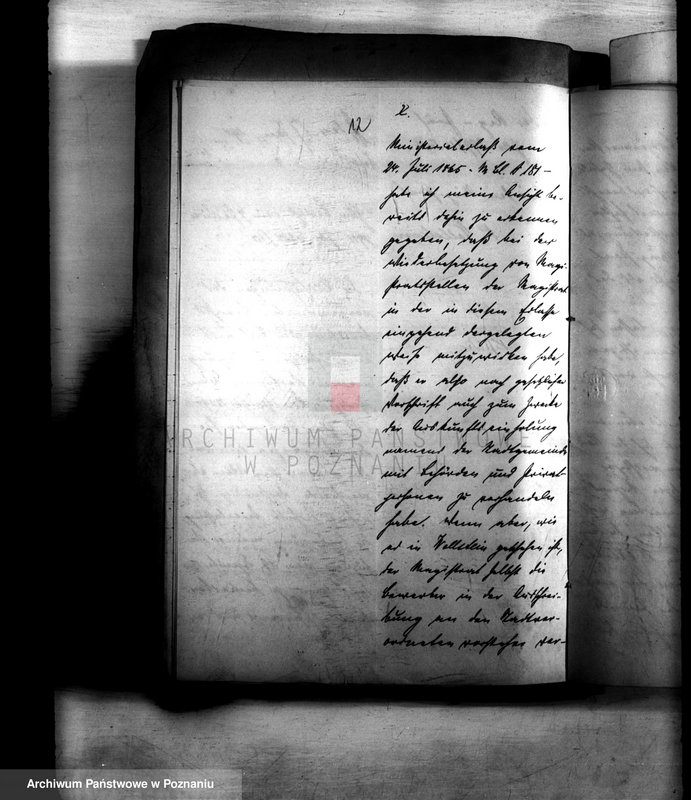 12
2.
Ministerialerlaß vom
24. Juli 1865 - M. Bl. S 181 -
habe ich meine Ansicht be-
reits dahin zu erkennen
gegeben, daß bei der
Wiederbesetzung von Magi-
stratsstellen der Magistrat
in der in diesem Erlasse
eingehend dargelegten
Weise mitzuwirken habe,
daß er also nach gesetzlicher
Vorschrift auch zum Zwecke
der Auskunftseinholung
namens der Stadtgemeinde
mit Behörden und Privat-
personen zu verhandeln
habe. Wenn aber, wie
es in Wollstein geschehen ist,
der Magistrat selbst die
Bewerber in der Ausschrei-
bung an den Stadtver-
ordneten vorsteher ver-
ARCHIWUM PAŃSTWOWE
W POZNANIU
Archiwum Państwowe w Poznaniu